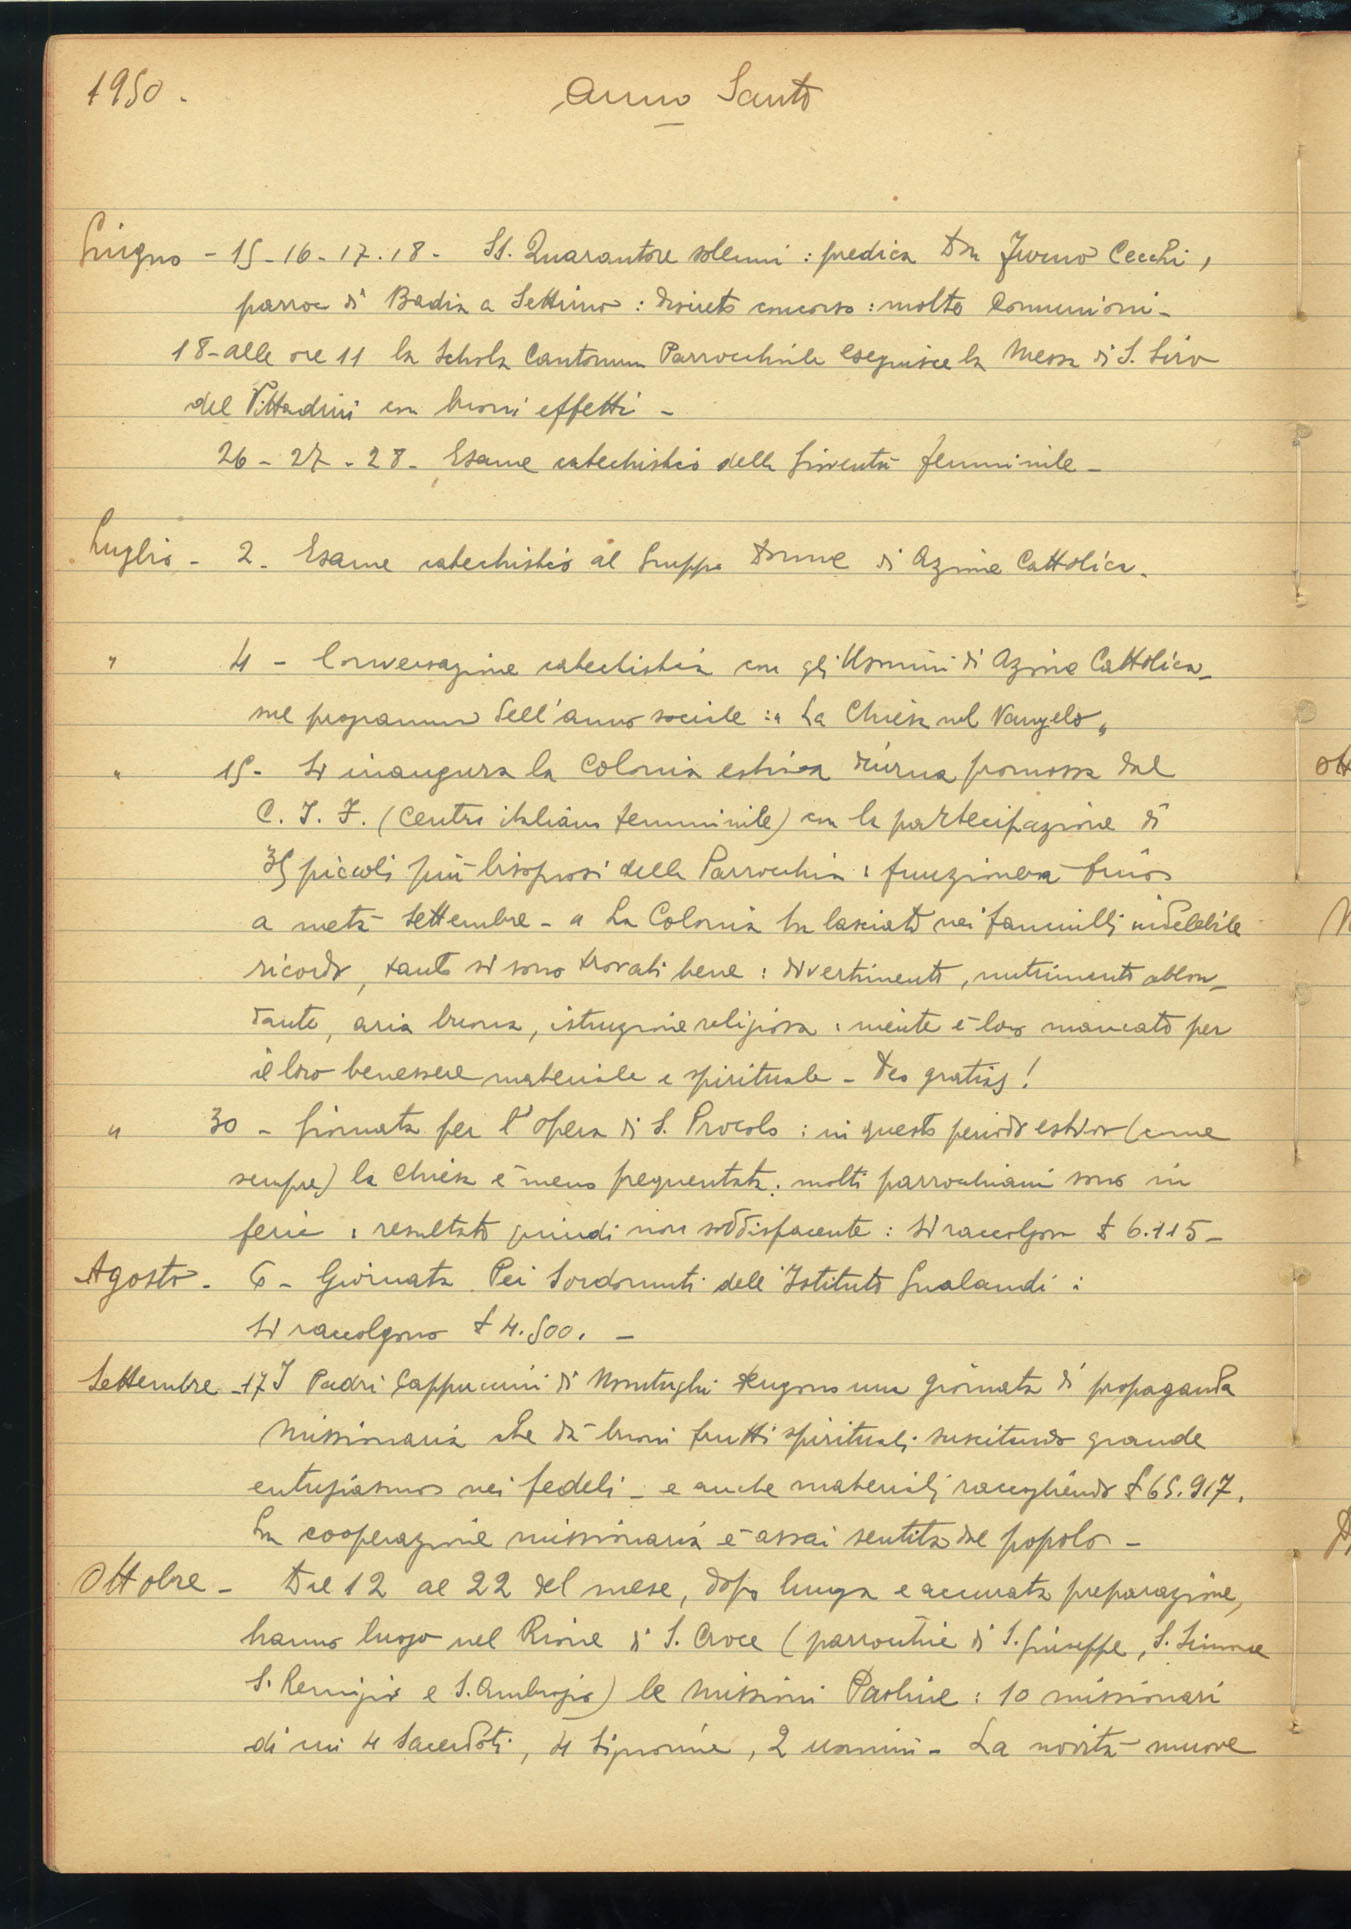 1950.
Anno Santo
Giugno - 15-16-17.18- SS. Quarantore solenni: predica Don Cecchi,
parroco di Badia a Settimo: discreto concorso: molte Comunioni-
18-alle ore 11 la Schola Cantorum Parrocchiale eseguisce la Messa di S. Siro
del Vittadini con buoni effetti -
26 - 27 - 28 - Esame catechistico della Gioventù femminile -
Luglio - 2. Esame catechistico al Gruppo Donne di Azione Cattolica.
" 4 - Conversazione catechistica con gli Uomini di Azione Cattolica -
sul programma dell'anno sociale: "La Chiesa nel Vangelo"
" 15- Si inaugura la Colonia estiva diurna promossa dal
C. I. F. (Centro italiano femminile) con la partecipazione di
35 piccoli più bisognosi della Parrocchia: funzionerà fino
a metà Settembre - La Colonia ha lasciato nei fanciulli indelebile
ricordo, tanto si sono trovati bene: divertimento, nutrimento abbon-
dante, aria buona, istruzione religiosa: niente è loro mancato per
il loro benessere materiale e spirituale - Deo gratias!
" 30 - Giornata per l'Opera di S. Procolo: in questo periodo estivo (come
sempre) la Chiesa è meno frequentata: molti parrocchiani sono in
ferie: resultato quindi non soddisfacente: si raccolgono £ 6.115-
Agosto - 6 - Giornata Pei Sordomuti dell'Istituto Gualandi:
si raccolgono £ 4.500. -
Settembre - 17 I Padri Cappuccini di Montughi tengono una giornata di propaganda
missionaria che dà buoni frutti spirituali suscitando grande
entusiasmo nei fedeli - e anche materiali raccogliendo £ 65.917.
La cooperazione missionaria è assai sentita dal popolo -
Ottobre - Dal 12 al 22 del mese, dopo lunga e accurata preparazione,
hanno luogo nel Rione di S. Croce (parrocchie di S. Giuseppe, S. Simone
S. Remigio e S. Ambrogio) le Missioni Paoline: 10 missionari
di cui 4 Sacerdoti, 4 Signorine, 2 uomini - La novità muove